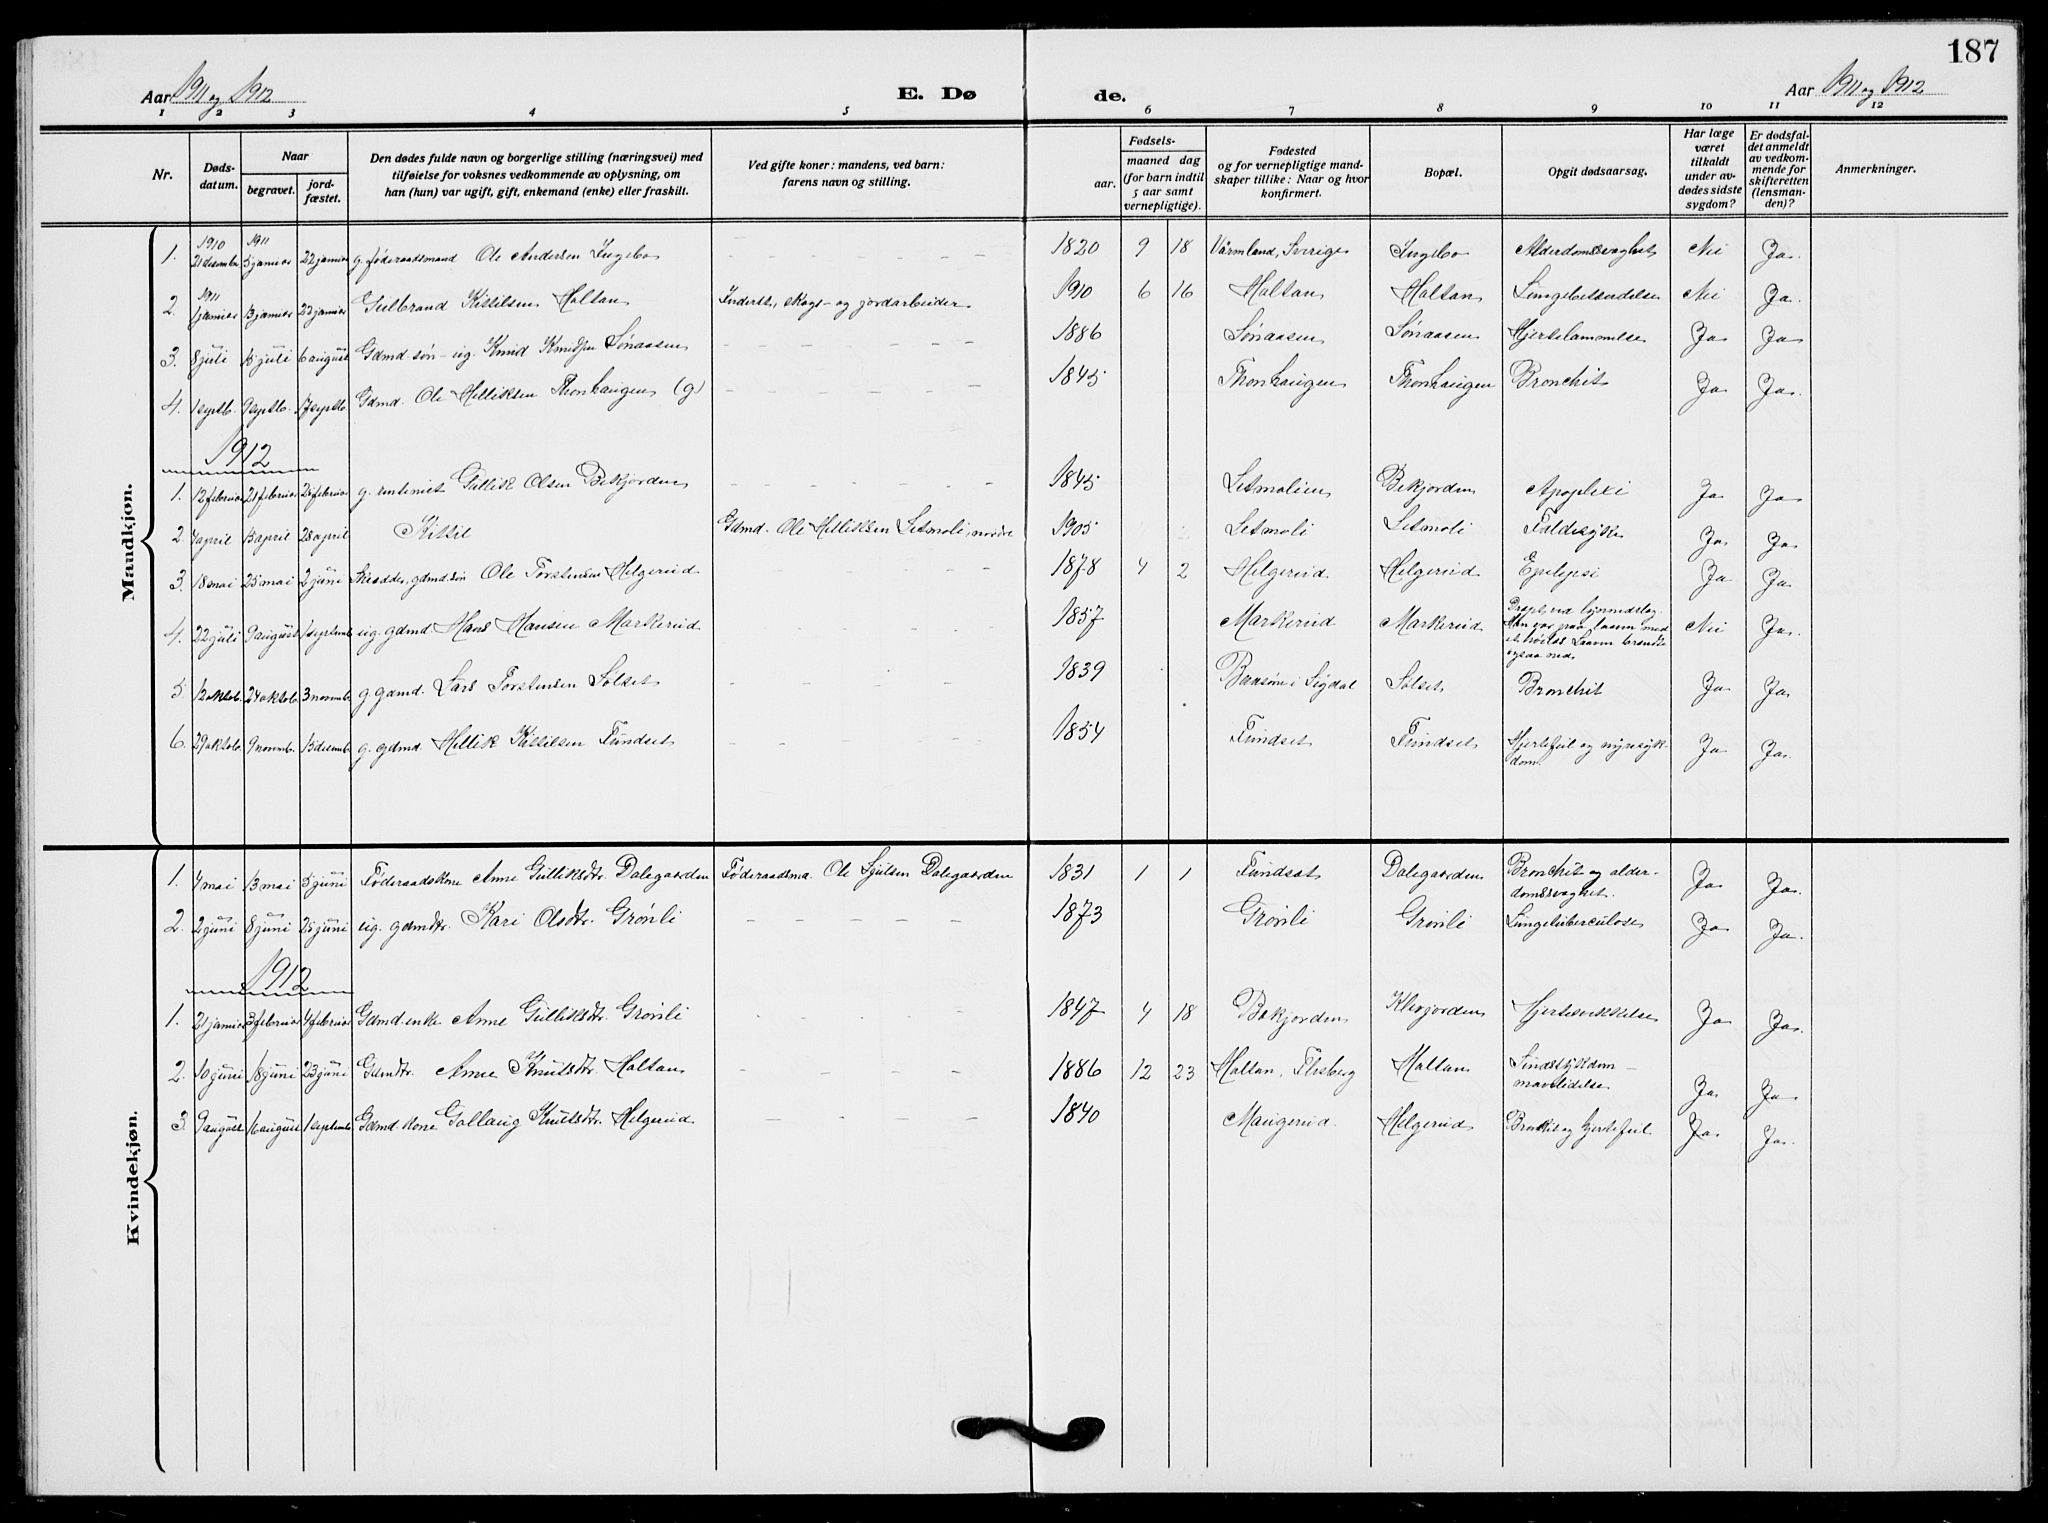 187
Aar 1911 og 1912 E. Dø de. Aar 1911 og 1912
1 2 3 4 5 6 7 8 9 10 11 12
Nr. Døds-datum. Naar begravet. jord-fæstet. Den dødes fulde navn og borgerlige stilling (næringsvei) med tilføielse for voksnes vedkommende av oplysning, om han (hun) var ugift, gift, enkemand (enke) eller fraskilt. Ved gifte koner: mandens, ved barn: farens navn og stilling. Fødsels- aar. maaned dag (for barn indtil 5 aar samt vernepligtige). Fødested og for vernepligtige mand-skaper tillike: Naar og hvor konfirmert. Bopæl. Opgit dødsaarsag. Har læge været tilkaldt under av-dødes sidste sygdom? Er dødsfal-det anmeldt av vedkom-mende for skifteretten (lensman-den)? Anmerkninger.
Mandkjøn.
1910 1911
1. 21 desembr 5 januar 22 januar g. føderaadsmand Ole Andersen Ingebo – – – – – – 1820 9 18 Värmland, Sverige Ingebo Alderdomssvaghet Nei Ja
1911
2. 1 januar 13 januar 22 januar Gulbrand Kittilsen Haltan Inderst, skogs- og jordarbeider 1910 6 16 Haltan Haltan Lungebetændelse Nei Ja
3. 8 juli 15 juli 6 august Gdmd. søn – ug. Knud Knudsen Sønaasen – – – – – – 1886 Sønaasen Sønaasen Hjertelammelse Ja Ja
4. 1 septb. 9 septb. 17 septb. Gdmd. Ole Helliksen Thonhaugen (g) – – – – – – 1845 Thonhaugen Thonhaugen Bronchit Ja Ja
1912
1. 12 februar 21 februar 25 februar g. rentenist Gullik Olsen Bekjorden – – – – – – 1845 Letmolien Bekjorden Apoplexi Ja Ja
2 4 april 13 april 28 april Kittil Gdmd. Ole Helliksen Letmoli, nordre 1905 Letmoli Letmoli Faldesyke Ja Ja
3. 18 mai 25 mai 2 juni Skrædder, gdmd.søn Ole Torstensen Helgerud – – – – – 1878 4 2 Helgerud Helgerud Epilepsi Ja Ja
4. 22 juli 9 august 1 septemb. ug. gdmd Hans Hansen Markerud – – – – – 1857 Markerud Markerud Dræpt ved lynnedslag. Han var paa laaven med et høilas. Laaven brændte ogsaa ned. Nei Ja
5. 12 oktob. 24 oktob. 3 novemb. g. gdmd. Lars Torstensen Solset – – – – 1839 i Sigdal Solset Bronchit Ja Ja
6. 29 oktob. 9 novemb. 15 desemb. g. gdmd Hellik Kittilsen Fundset – – – – – 1854 Fundset Fundset Hjertefeil og nyresyk-dom. Ja Ja
Kvindekjøn.
1. 4 mai 13 mai 5 juni Føderaadskone Anne Gulliksdtr. Dalegaarden Føderaadsma. Ole Sjulsen Dalegaarden 1831 1 1 Fundset Dalegaarden Bronchit og alder-domssvaghet. Ja Ja
2. 2 juni 8 juni 25 juni ug. gdmdtr. Kari Olsdtr. Grønli – – – – – 1873 Grønli Grønli Lungetuberculose Ja Ja
1912
1. 21 januar 3 februar 4 februar Gdmd. enke Anne Gulliksdtr. Grønli – – – – – 1847 4 18 Bekjorden Klevjorden Hjertesvekkelse Ja Ja
2. 10 juni 18 juni 23 juni Gdmdtr. Anne Knutsdtr. Haltan – – – – – 1886 12 23 Haltan, Flesberg Haltan Sindssykdom – mavelidelse Ja Ja
3. 9 august 16 august 1 septemb. Gdmd kone Gollaug Knutsdtr. Helgerud – – – – – 1840 Maugerud Helgerud Bronkit og hjertefeil Ja Ja